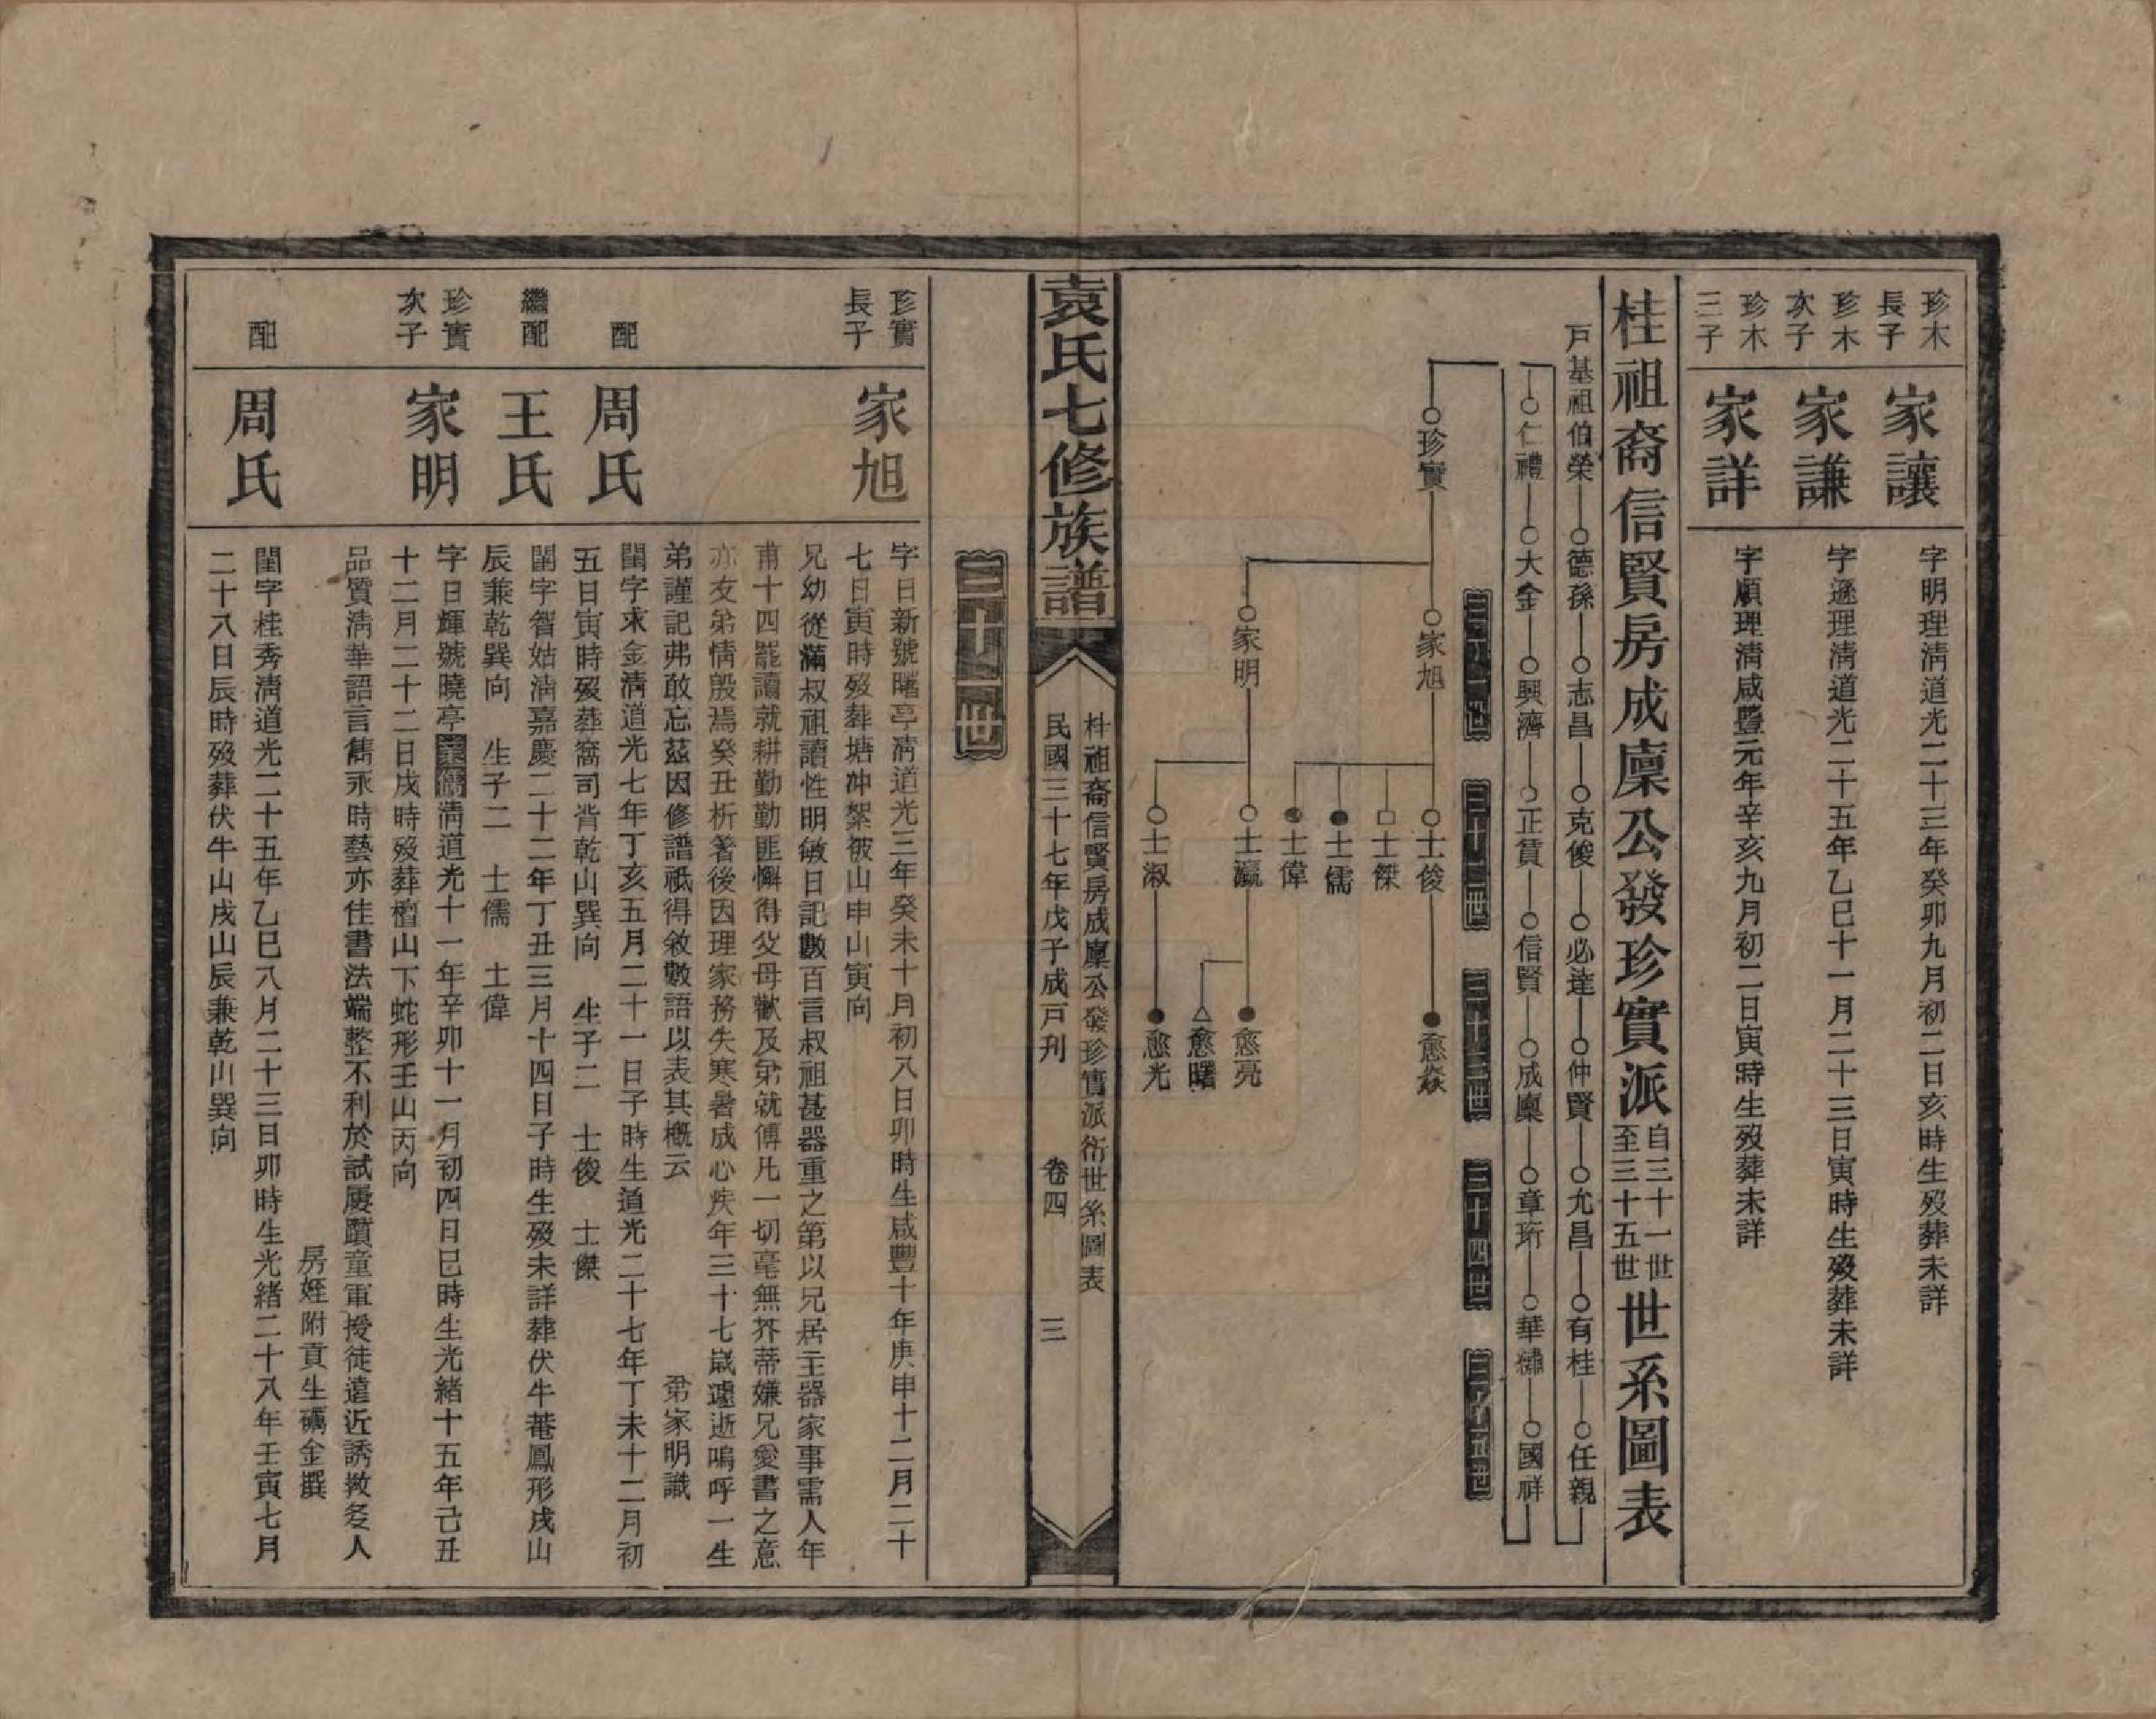 珍木長子
家讓
字明理淸道光二十三年癸卯九月初二日亥時生歿葬未詳
珍木次子
家謙
字遜理淸道光二十五年乙巳十一月二十三日寅時生歿葬未詳
珍木三子
家詳
字順理淸咸豐元年辛亥九月初二日寅時生歿葬未詳
桂祖裔信賢房成廩公發珍實派自三十一世至三十五世世系圖表
戶基祖伯榮 德孫 志昌 克俊 必達 仲賢 允昌 有桂 任親
仁禮 大金 興濟 正賃 信賢 成廩 章珩 華 國祥
三十一世 三十二世 三十三世 三十四世 三十五世
珍實 家旭 士俊 愈焱
士傑
士儒
士偉
家明 士瀛 愈亮
愈曙
士淑 愈光
袁氏七修族譜
桂祖裔信賢房成廩公發珍實派衍世系圖表
民國三十七年戊子成戶刋 卷四 三
三十二世
珍實長子
家旭
字日新號曙亭淸道光三年癸未十月初八日卯時生咸豐十年庚申十二月二十
七日寅時歿葬塘冲絮被山申山寅向
兄幼從滿叔祖讀性明敏日記數百言叔祖甚器重之第以兄居主器家事需人年
甫十四罷讀就耕勤勤匪懈得父母歡及弟就傅凡一切毫無芥蒂嫌兄愛書之意
亦友弟情殷焉癸丑析箸後因理家務失寒暑成心疾年三十七歲遽逝嗚呼一生
弟謹記弗敢忘茲因修譜祇得敘數語以表其槪云 弟家明識
配
周氏
閨字求金淸道光七年丁亥五月二十一日子時生道光二十七年丁未十二月初
五日寅時歿葬窩司背乾山巽向 生子二 士俊 士傑
繼配
王氏
閨字智姑淸嘉慶二十二年丁丑三月十四日子時生歿未詳葬伏牛菴鳳形戌山
辰兼乾巽向 生子二 士儒 士偉
珍實次子
家明
字日輝號曉亭業儒淸道光十一年辛卯十一月初四日巳時生光緒十五年己丑
十二月二十二日戌時歿葬檀山下蛇形壬山丙向
品質淸華語言雋永時藝亦佳書法端整不利於試屢躓童軍授徒遠近誘敎多人
房姪附貢生礪金撰
配
周氏
閨字桂秀淸道光二十五年乙巳八月二十三日卯時生光緒二十八年壬寅七月
二十八日辰時歿葬伏牛山戌山辰兼乾山巽向